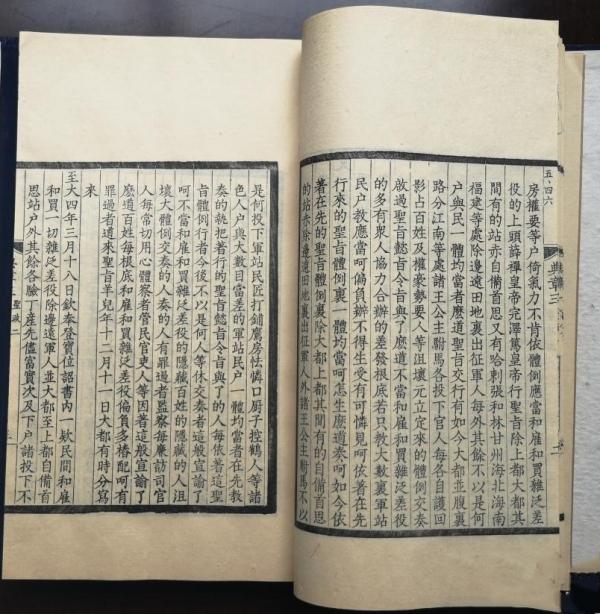 五、四六
典章三
房權要等户倚氣力不肯依體例應當和雇和買雜泛差
役的上頭薛禪皇帝完澤篤皇帝行聖旨除上都大都其
間有的站赤自備首思又有哈剌張和林甘州海北海南
福建等處除邊遠田地裏出征軍人每外其餘不以是何
户與民一體均當者麽道聖旨交行有如今大都並腹裏
路分江南等處諸王公主駙馬各投下官人每各自護回
影占百姓及權豪勢要人等沮壞元立定來的體例交奏
啟過聖旨懿旨令旨與了麽道不當和雇和買雜泛差役
的多有衆人協力合辦的差發根底若只教大數裏軍站
民户教應當呵偏負辦不得生受有可憐見呵依著在先
行來的聖旨體例裏一體均當呵怎生麽道奏呵如今依
著在先的聖旨體例裏除大都上都其間有的自備首思
的站赤除邊遠田地裏出征軍人外諸王公主駙馬不以
是何投下軍站民匠打鋪鷹房怯憐口廚子控鶴人等諸
色人户與大數目當差的軍站民户一體均當者在先教
奏的執把著行的聖旨懿旨令旨與了的人每依著這聖
旨體例行者今後不以是何人等休交奏者這般宣諭了
呵不當和雇和買雜泛差役的隱藏百姓的隱藏的人沮
壞大體例交奏的人奏的人有罪過者監察每廉訪司官
人每常切用心體察者管民官吏人等因著這般宣諭了
麽道百姓每根底和雇和買雜泛差役偏負多樁配呵有
罪過者道來聖旨羊兒年十二月十一日大都有時分寫
來
至大四年三月十八日欽奉登寶位詔書內一款民間和雇
和買一切雜泛差役除邊遠軍人並大都至上都自備首
思站户外其餘各驗丁產先儘富實次及下户諸投下不
聖政二